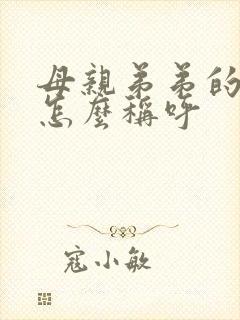 母親弟弟的
怎麼稱呼
寇小敏